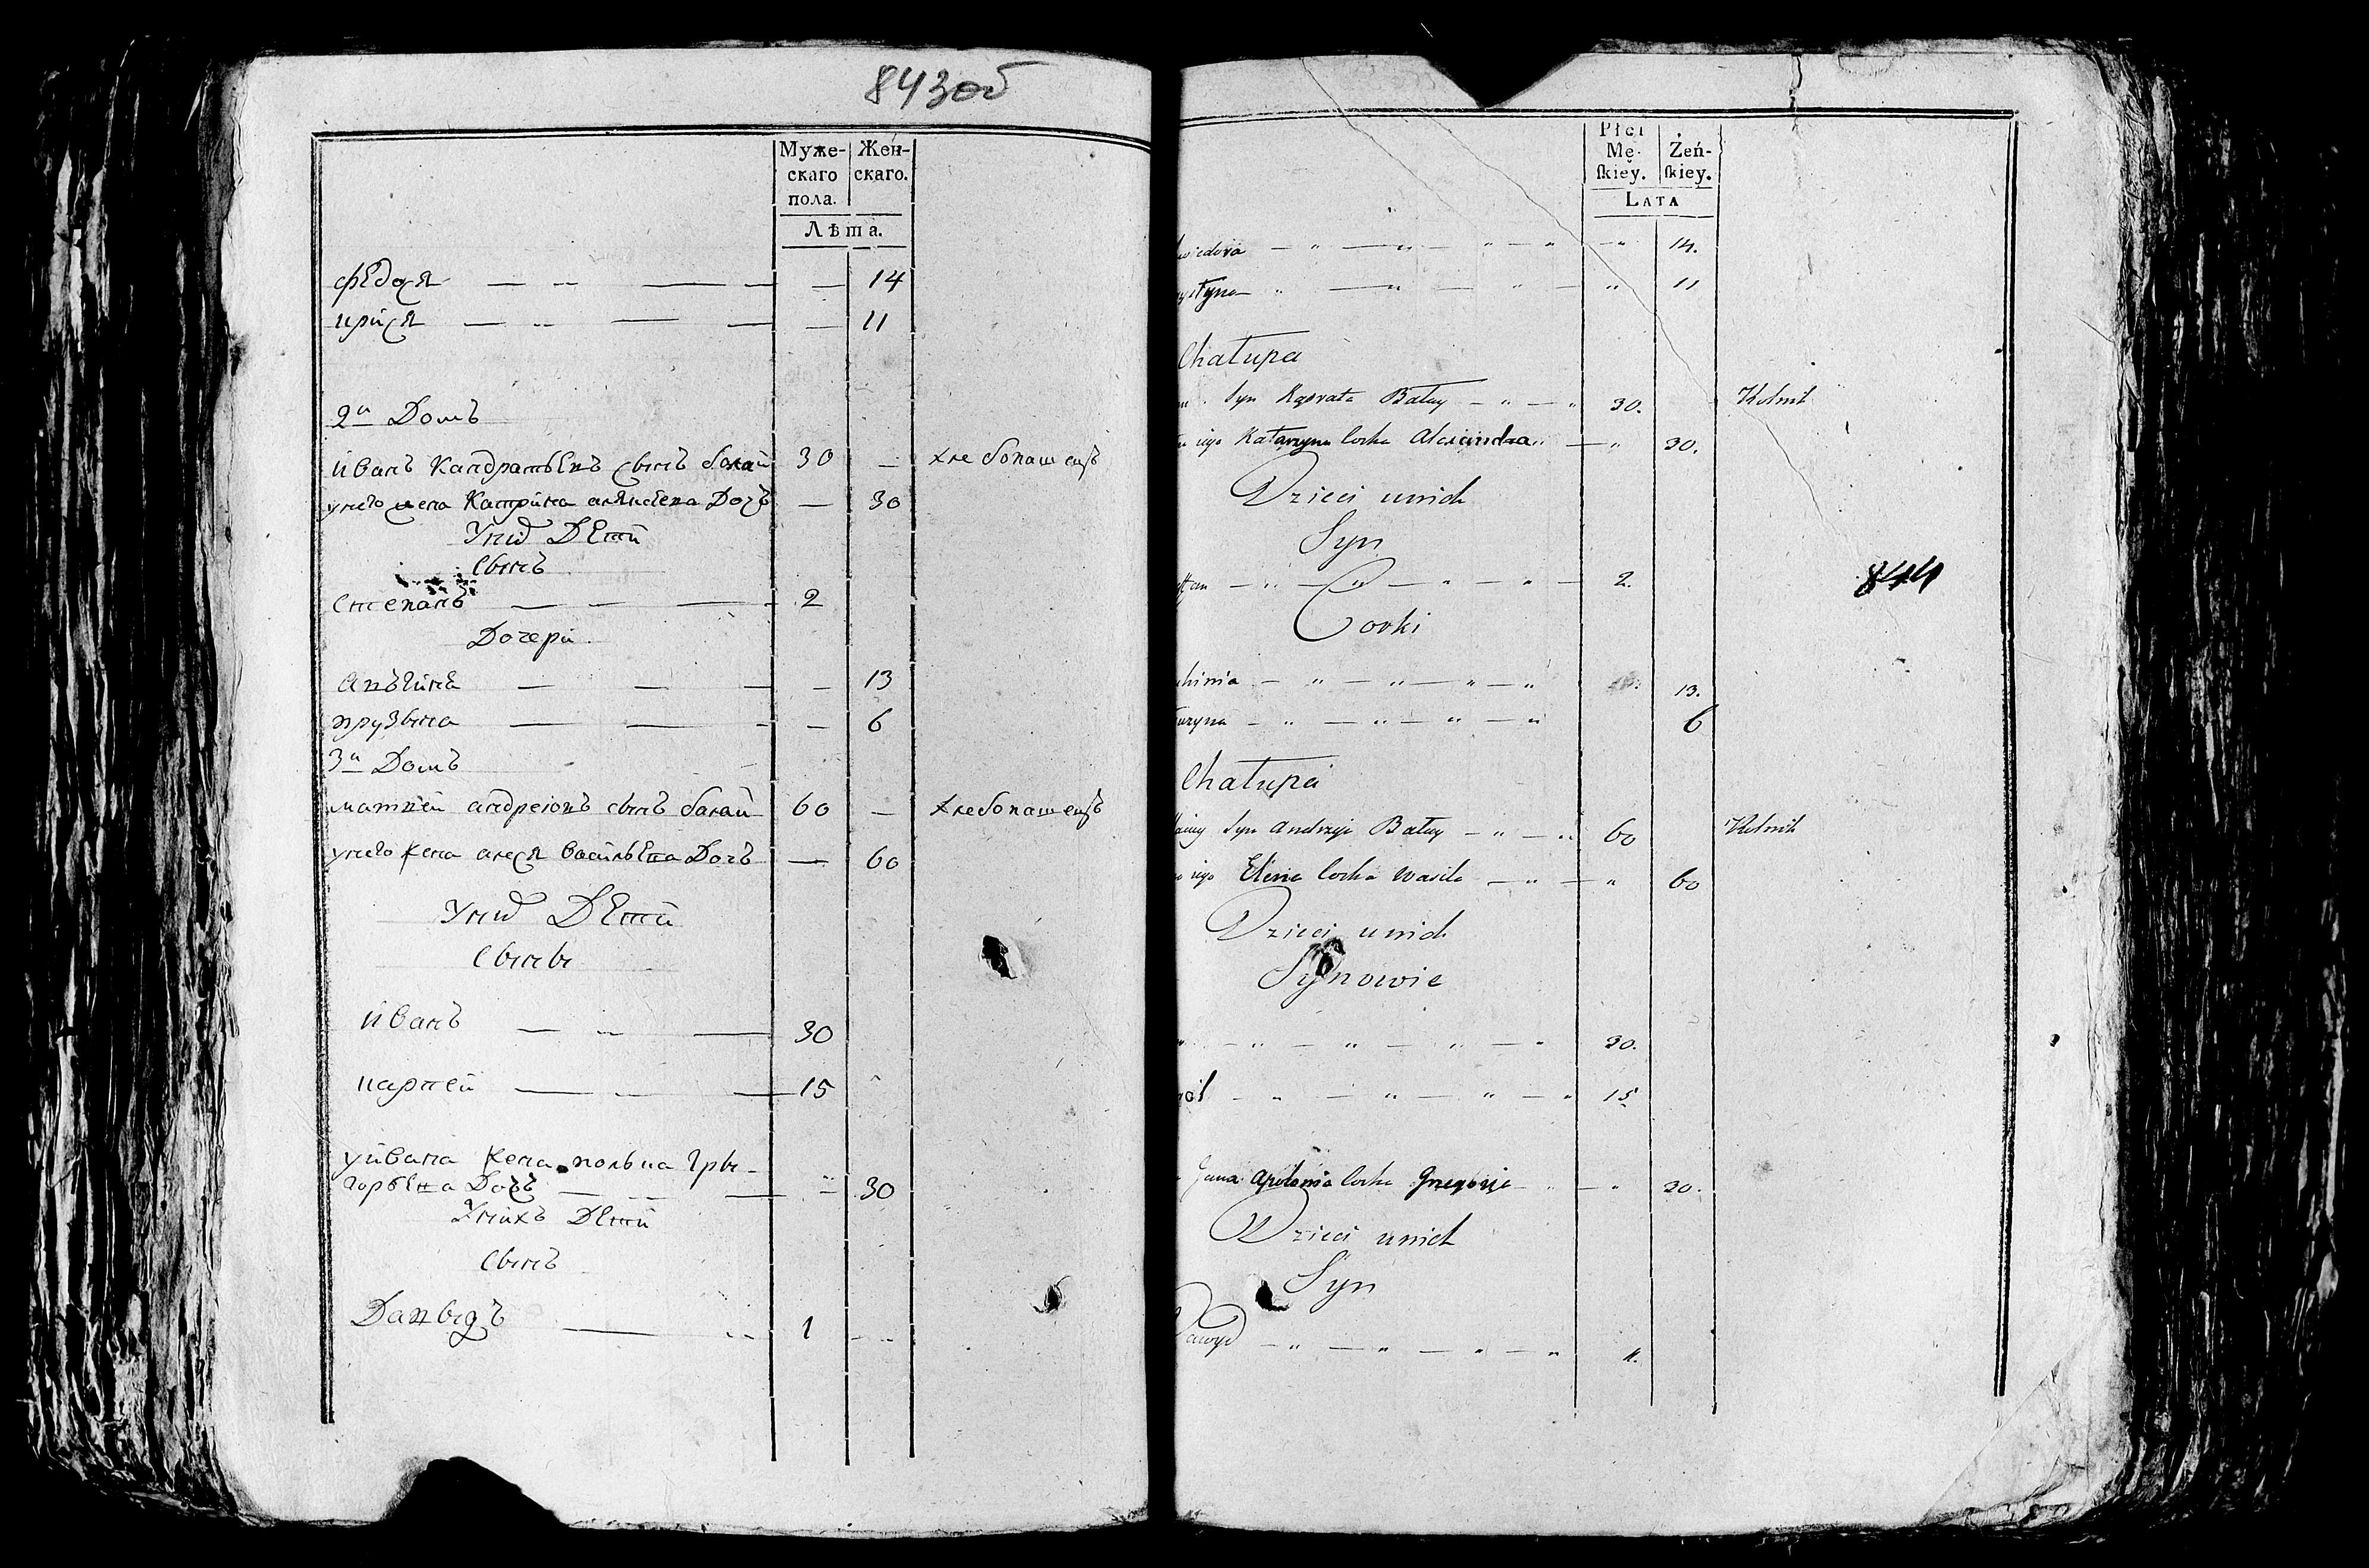 843об
Муже-
скаго
пола.
Жен-
скаго.
Лѣта.
федося — — — — 14
— — — — 11
2й Домъ
иванъ Кандратьевъ сынъ балай 30 — хлебопашецъ
унего жена Катрина Дочъ — 30
Уних Дети
Сынъ
степанъ — — — 2
Дочери
— — — — 13
прузына — — — — 6
3й Домъ
матвей андреювъ сынъ балай 60 — хлебопашецъ
унего жена алеся васильева Дочъ — 60
Уних Дети
Сыны
иванъ — — — 30
— — — 15
уйвана жена польца Гры-
горьева Дочъ — — — 30
Унихъ Дети
Сынъ
Давыдъ — — 1
Płci
Mę-
skiey.
Żeń-
skiey.
Lata
14.
11
Chałupa
Syn Bałay 30. Rolnik
iego Katarzyna Corka Alexandra 30.
Dzieci unich
Syn
2.
Corki
13.
6
Chałupa
Syn Andrzeja Bałay 60 Rolnik
iego Elena Corka Wasila 60
Dzieci unich
Synowie
30.
15
Jana Apolonia Corka Gregorja 30.
Dzieci unich
Syn
Dawyd 1.
844